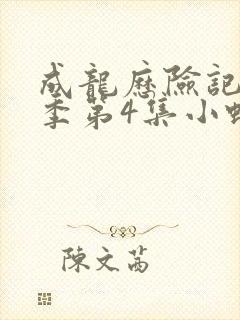 成龍歷險記
季第4集小蝴
陳文茜